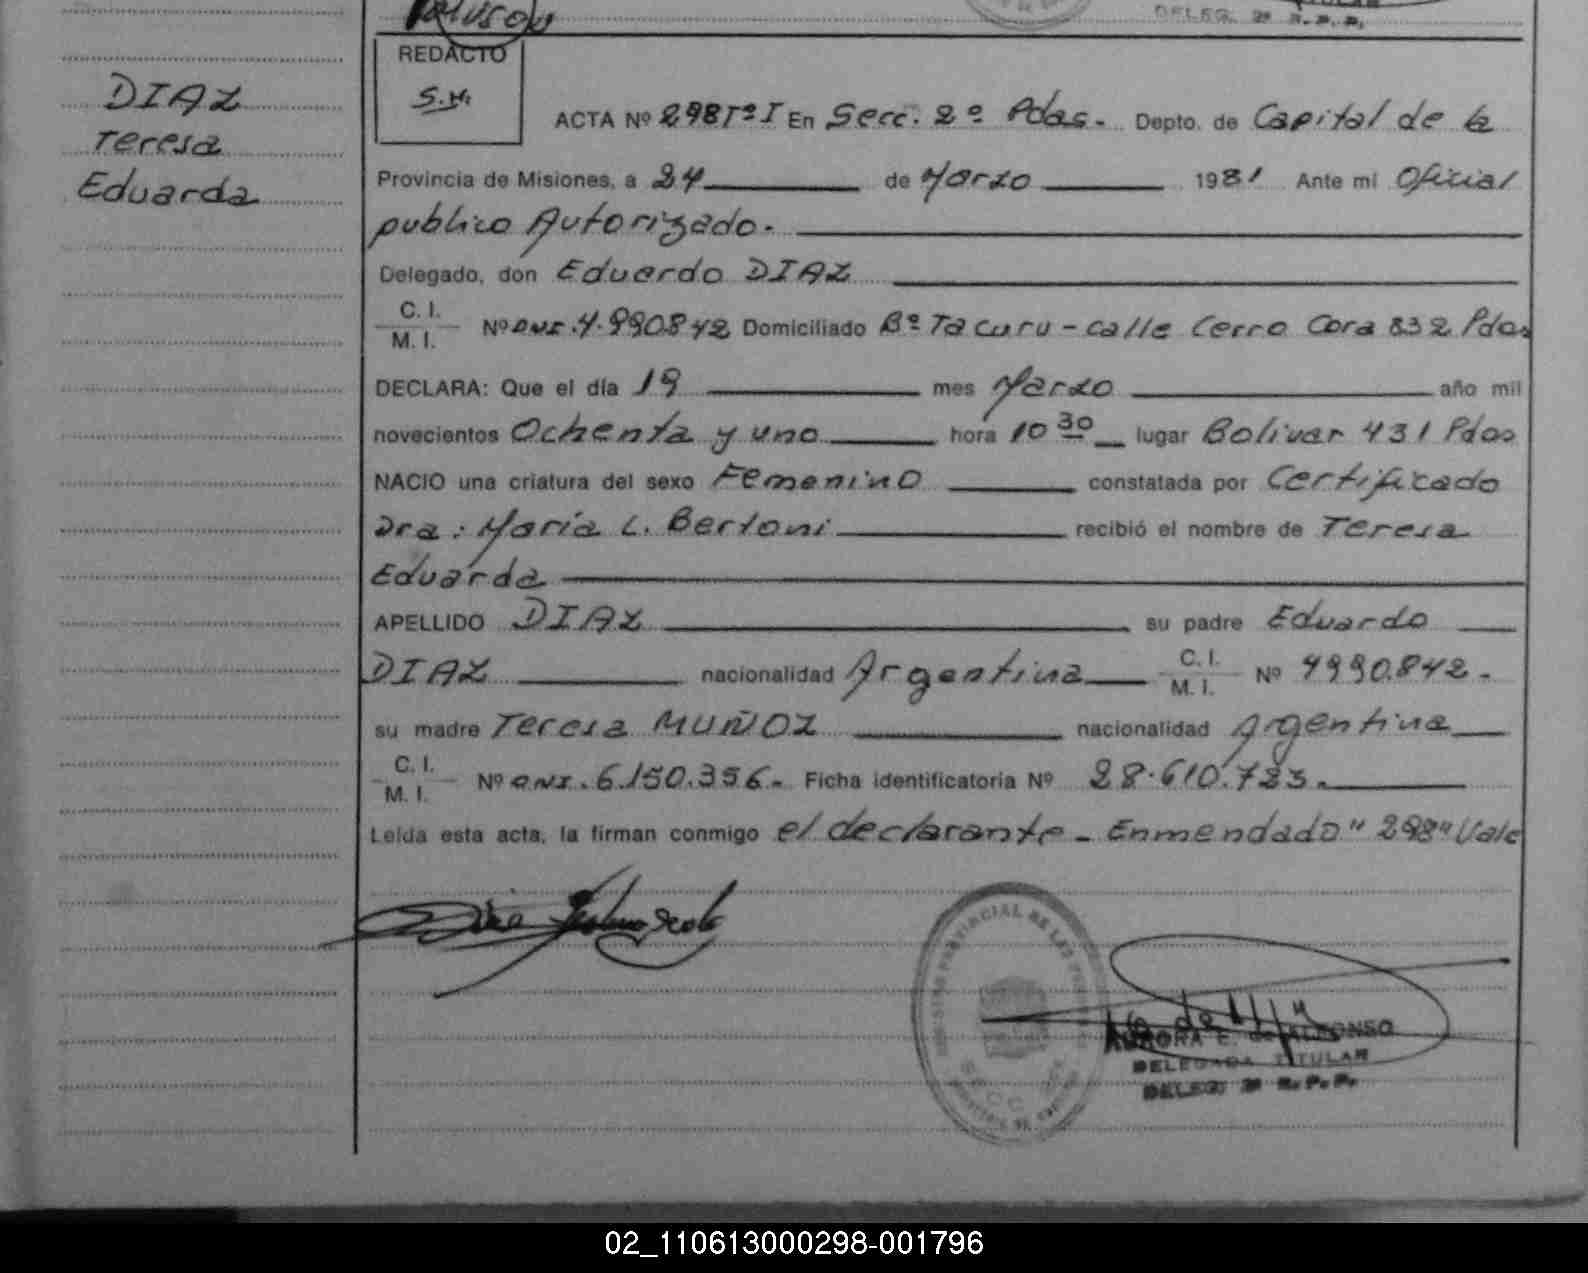 DELEG. 2ª R.P.P.
REDACTO
S.M.
DIAZ
Teresa
Eduarda
ACTA Nº 298 Tº I En Secc. 2º Pdas. Depto. de Capital de la
Provincia de Misiones, a 24 de Marzo 1981 Ante mi Oficial
publico Autorizado.
Delegado, don Eduardo DIAZ
C. I.
M. I. Nº DNI. 4.990.842 Domiciliado Bº Tacuru - calle Cerro Cora 832 Pdas
DECLARA: Que el día 19 mes Marzo año mil
novecientos Ochenta y uno hora 10 30 lugar Bolivar 431 Pdas
NACIO una criatura del sexo Femenino constatada por Certificado
Dra: Maria L. Bertoni recibió el nombre de Teresa
Eduarda
APELLIDO DIAZ su padre Eduardo
DIAZ nacionalidad Argentina C. I.
M. I. Nº 4990.842.
su madre Teresa MUÑOZ nacionalidad Argentina
C. I.
M. I. Nº DNI. 6.150.356. Ficha identificatoria Nº 28.610.723.
Leída esta acta, la firman conmigo el declarante - Enmendado "298" Vale
Diaz Eduardo
AURORA E. de ALFONSO
DELEGADA TITULAR
DELEG. 2ª R.P.P.
02_110613000298-001796